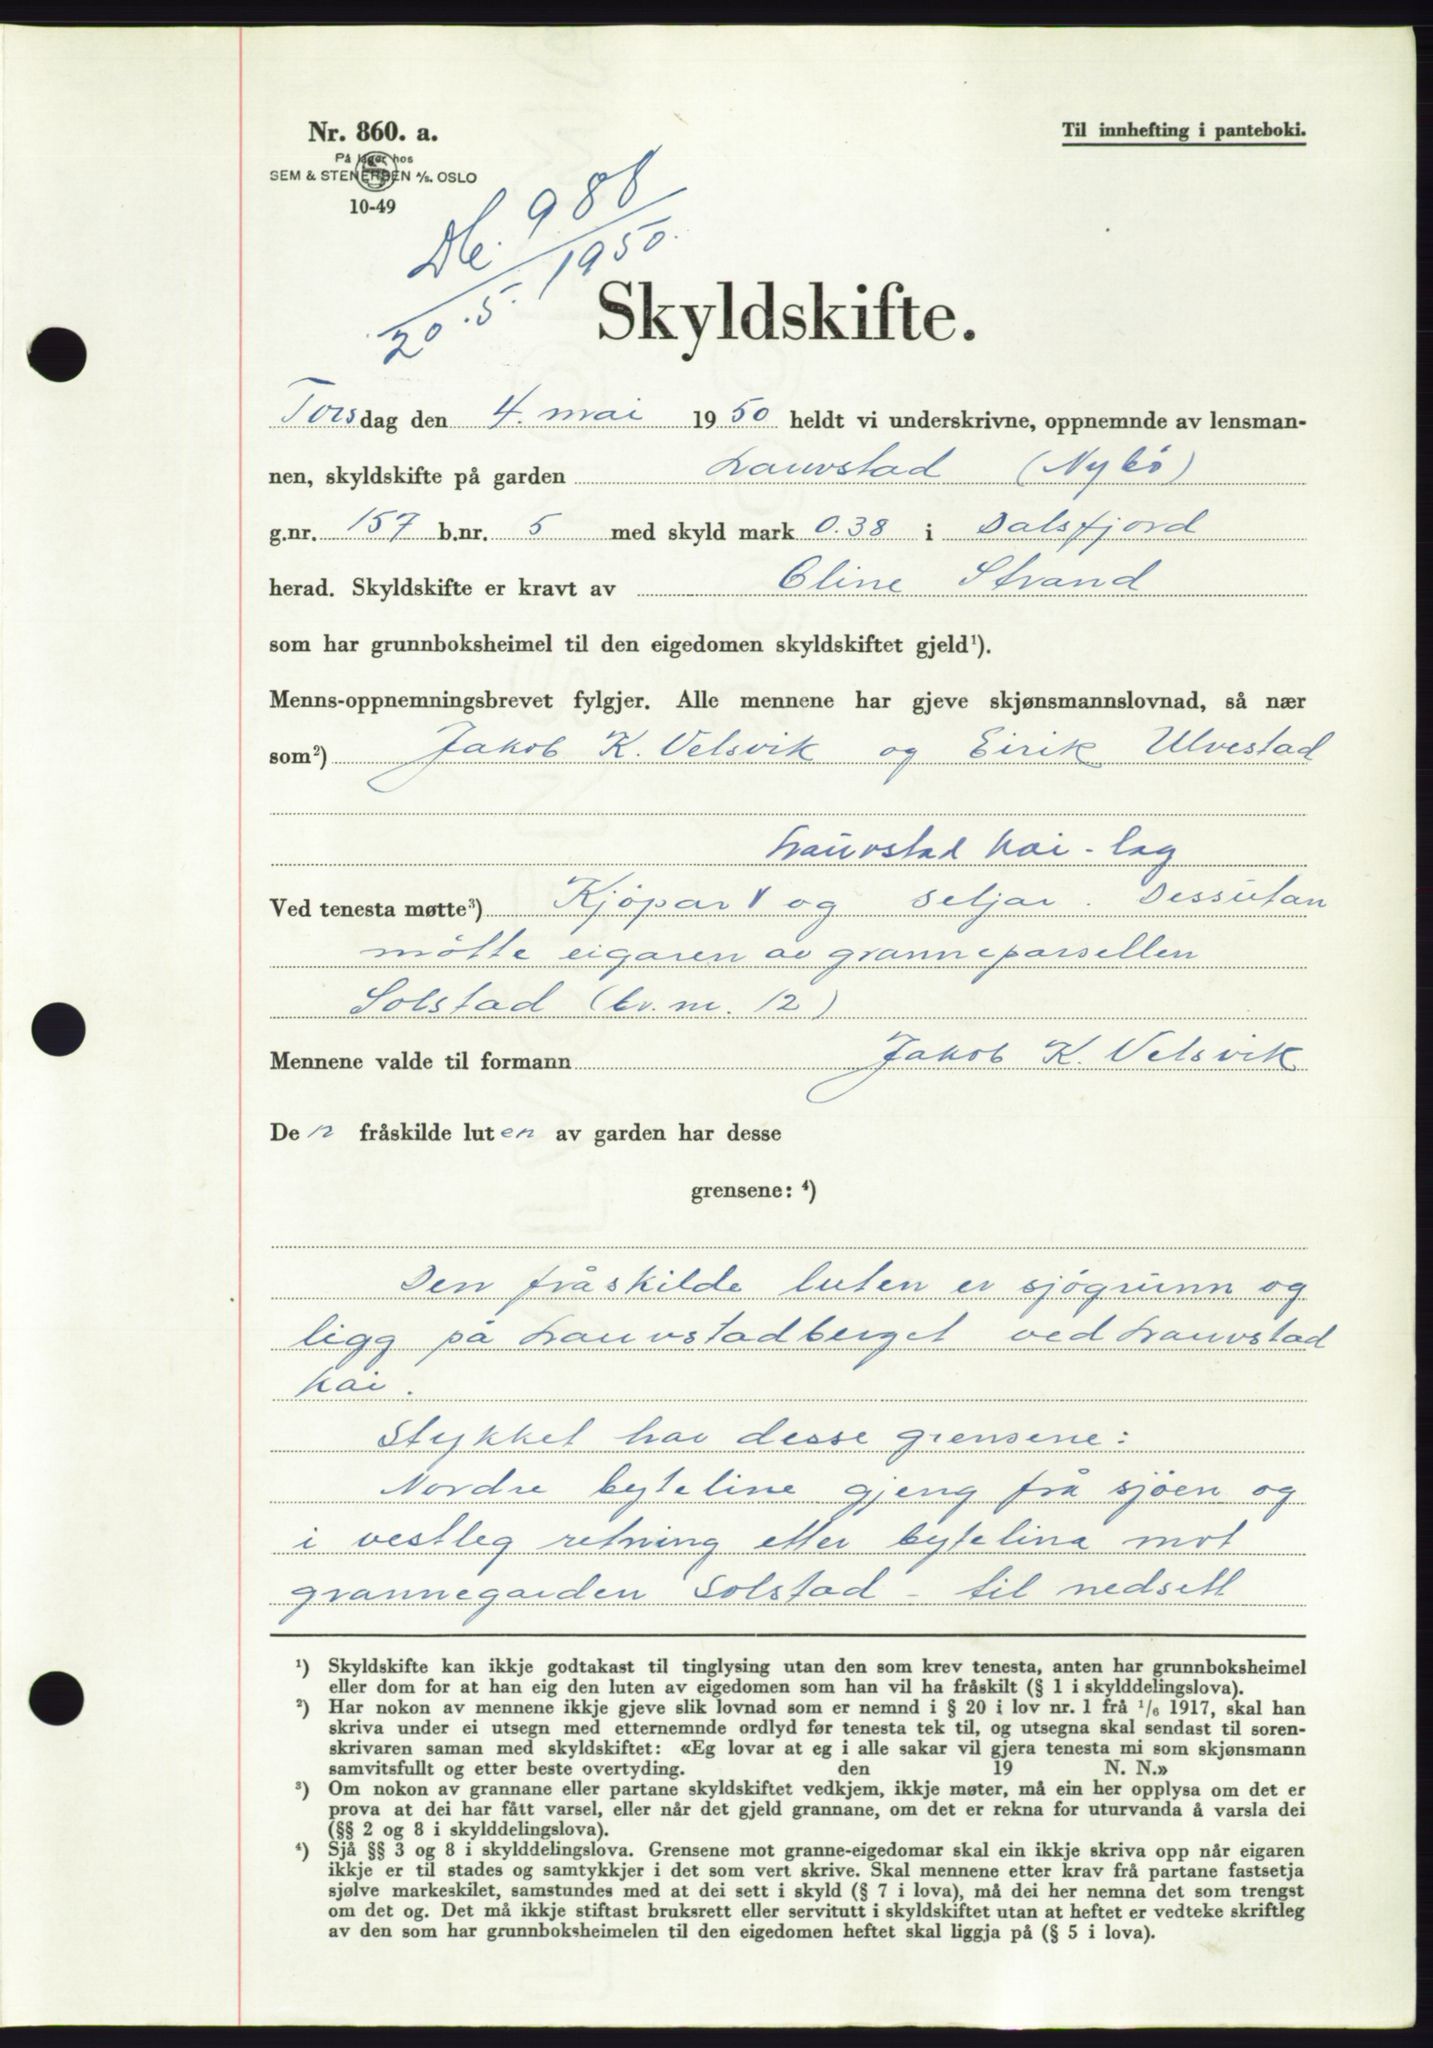 Nr. 860. a.
Til innhefting i panteboki.
På lager hos
SEM & STENERSEN A/S. OSLO
10-49
988
20.5.1950.
Skyldskifte.
Torsdag den 4. mai 1950 heldt vi underskrivne, oppnemnde av lensman-
nen, skyldskifte på garden Lauvstad (Nybö)
g.nr. 157 b.nr. 5 med skyld mark 0.38 i Dalsfjord
herad. Skyldskifte er kravt av Oline Strand
som har grunnboksheimel til den eigedomen skyldskiftet gjeld¹).
Menns-oppnemningsbrevet fylgjer. Alle mennene har gjeve skjønsmannslovnad, så nær
som²) Jakob K. Velsvik og Eirik Ulvestad
Lauvstad kai-lag
Ved tenesta møtte³) Kjöpar og seljar. Dessutan
mötte eigaren av granneparsellen
Solstad (br. nr. 12)
Mennene valde til formann Jakob K. Velsvik
Den fråskilde luten av garden har desse
grensene: ⁴)
Den fråskilde luten er sjögrunn og
ligg på Lauvstadberget ved Lauvstad
kai.
Stykket har desse grensene:
Nordre byteline gjeng frå sjöen og
i vestleg retning etter bytelina mot
grannegarden Solstad - til nedsett
¹) Skyldskifte kan ikkje godtakast til tinglysing utan den som krev tenesta, anten har grunnboksheimel
eller dom for at han eig den luten av eigedomen som han vil ha fråskilt (§ 1 i skylddelingslova).
²) Har nokon av mennene ikkje gjeve slik lovnad som er nemnd i § 20 i lov nr. 1 frå 1/6 1917, skal han
skriva under ei utsegn med etternemnde ordlyd før tenesta tek til, og utsegna skal sendast til soren-
skrivaren saman med skyldskiftet: «Eg lovar at eg i alle sakar vil gjera tenesta mi som skjønsmann
samvitsfullt og etter beste overtyding. den 19 N. N.»
³) Om nokon av grannane eller partane skyldskiftet vedkjem, ikkje møter, må ein her opplysa om det er
prova at dei har fått varsel, eller når det gjeld grannane, om det er rekna for uturvanda å varsla dei
(§§ 2 og 8 i skylddelingslova).
⁴) Sjå §§ 3 og 8 i skylddelingslova. Grensene mot granne-eigedomar skal ein ikkje skriva opp når eigaren
ikkje er til stades og samtykkjer i det som vert skrive. Skal mennene etter krav frå partane fastsetja
sjølve markeskilet, samstundes med at dei sett i skyld (§ 7 i lova), må dei her nemna det som trengst
om det og. Det må ikkje stiftast bruksrett eller servitutt i skyldskiftet utan at heftet er vedteke skriftleg
av den som har grunnboksheimelen til den eigedomen heftet skal liggja på (§ 5 i lova).